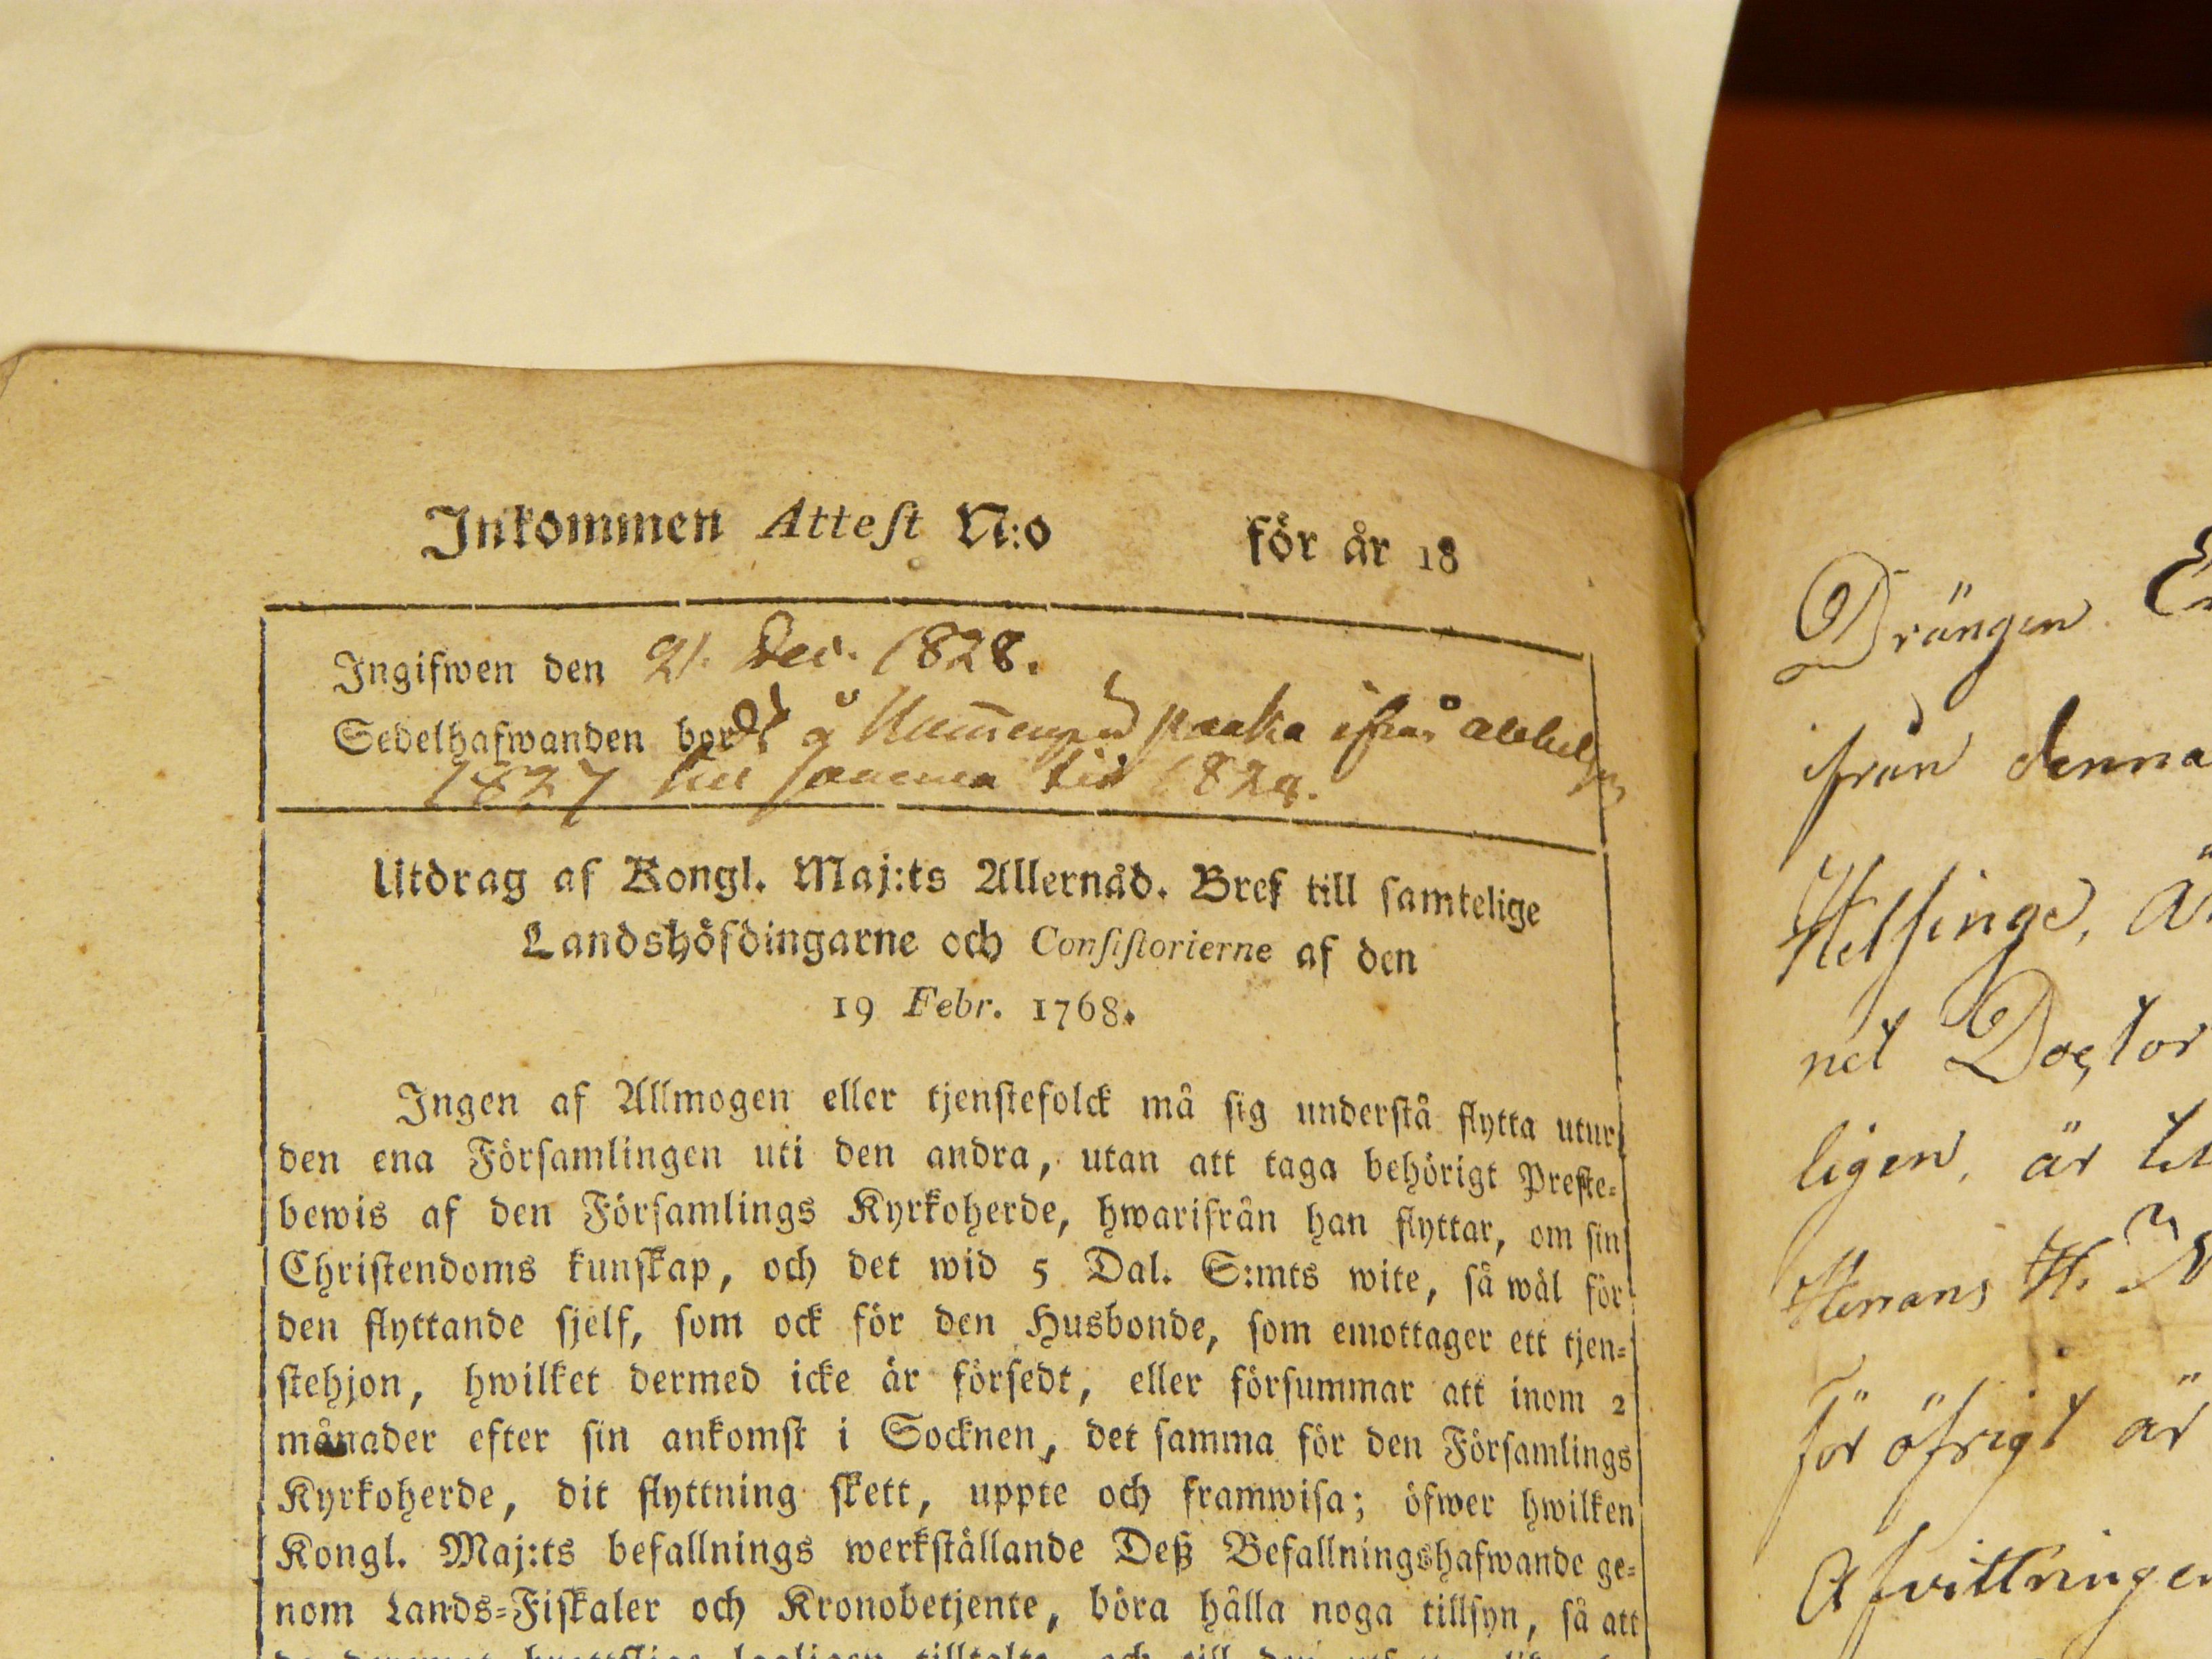 Inkommen Attest N:o för år 18
Ingifwen den 21. Dec. 1828.
Sedelhafwanden bor å ifrån
1827 till samma tid 1828.
Utdrag af Kongl. Maj:ts Allernåd. Bref till samtelige
Landshöfdingarne och Consistorierne af den
19 Febr. 1768.
Ingen af Allmogen eller tjenstefolck må sig understå flytta utur
den ena Församlingen uti den andra, utan att taga behörigt Preste-
bewis af den Församlings Kyrkoherde, hwarifrån han flyttar, om sin
Christendoms kunskap, och det wid 5 Dal. S:mts wite, så wäl för
den flyttande sjelf, som ock för den Husbonde, som emottager ett tjen-
stehjon, hwilket dermed icke är försedt, eller försummar att inom 2
månader efter sin ankomst i Socknen, det samma för den Församlings
Kyrkoherde, dit flyttning skett, uppte och framwisa; öfwer hwilken
Kongl. Maj:ts befallnings werkställande Deß Befallningshafwande ge-
nom Lands-Fiskaler och Kronobetjente, böra hålla noga tillsyn, så att
Drängen
ifrån denna
Helsinge,
net Doctor
ligen, är
Herrans H.
För öfrigt är
Afvittringen